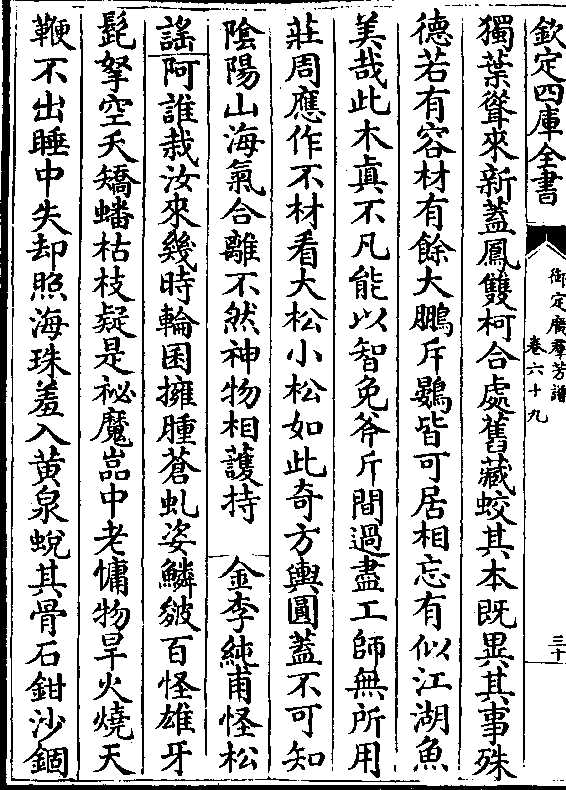 欽定四庫全書
御定廣羣芳譜
卷六十九
三十
獨葉聳來新蓋鳳雙柯合處舊藏蛟其本既異其事殊
德若有容材有餘大鵬斥鷃皆可居相忘有似江湖魚
美哉此木真不凡能以智免斧斤間過盡工師無所用
莊周應作不材看大松小松如此奇方輿圓蓋不可知
陰陽山海氣合離不然神物相䕶持　金李純甫怪松
謡阿誰栽汝來幾時輪囷擁腫蒼虬姿鱗皴百怪雄牙
髭拏空夭矯蟠枯枝疑是祕魔嵓中老慵物旱火燒天
鞭不出睡中失却照海珠羞入黄泉蛻其骨石鉗沙錮